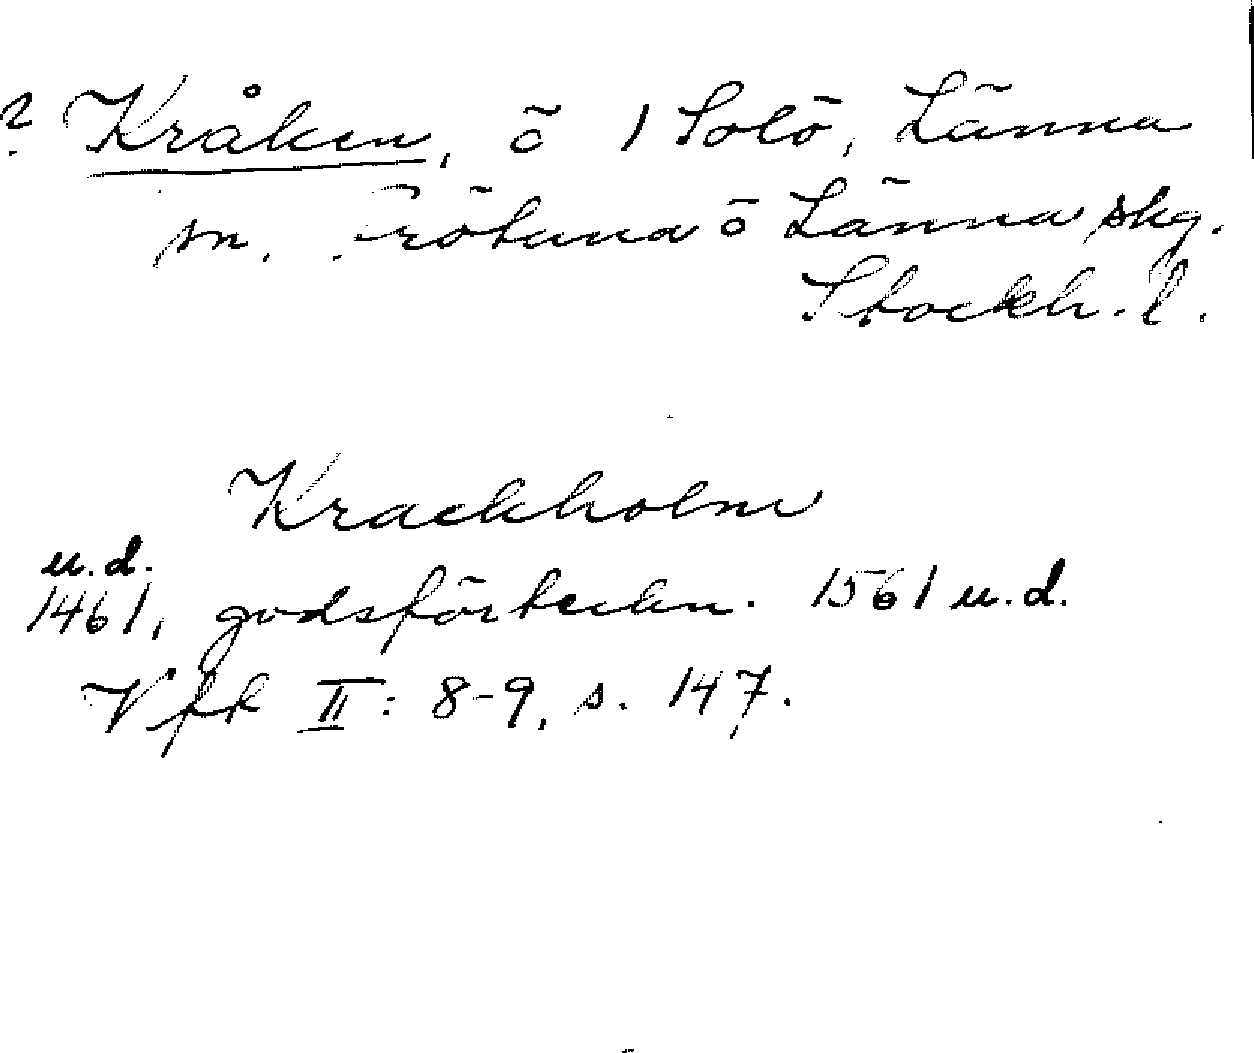 ? Kråken, ö 1 Solö, Länna
sn. Frötuna o Länna skg.
Stockh. l.
Krackholm
u.d.
1461, godsförteckn. 1561 u.d.
Vfk II: 8-9, s. 147.